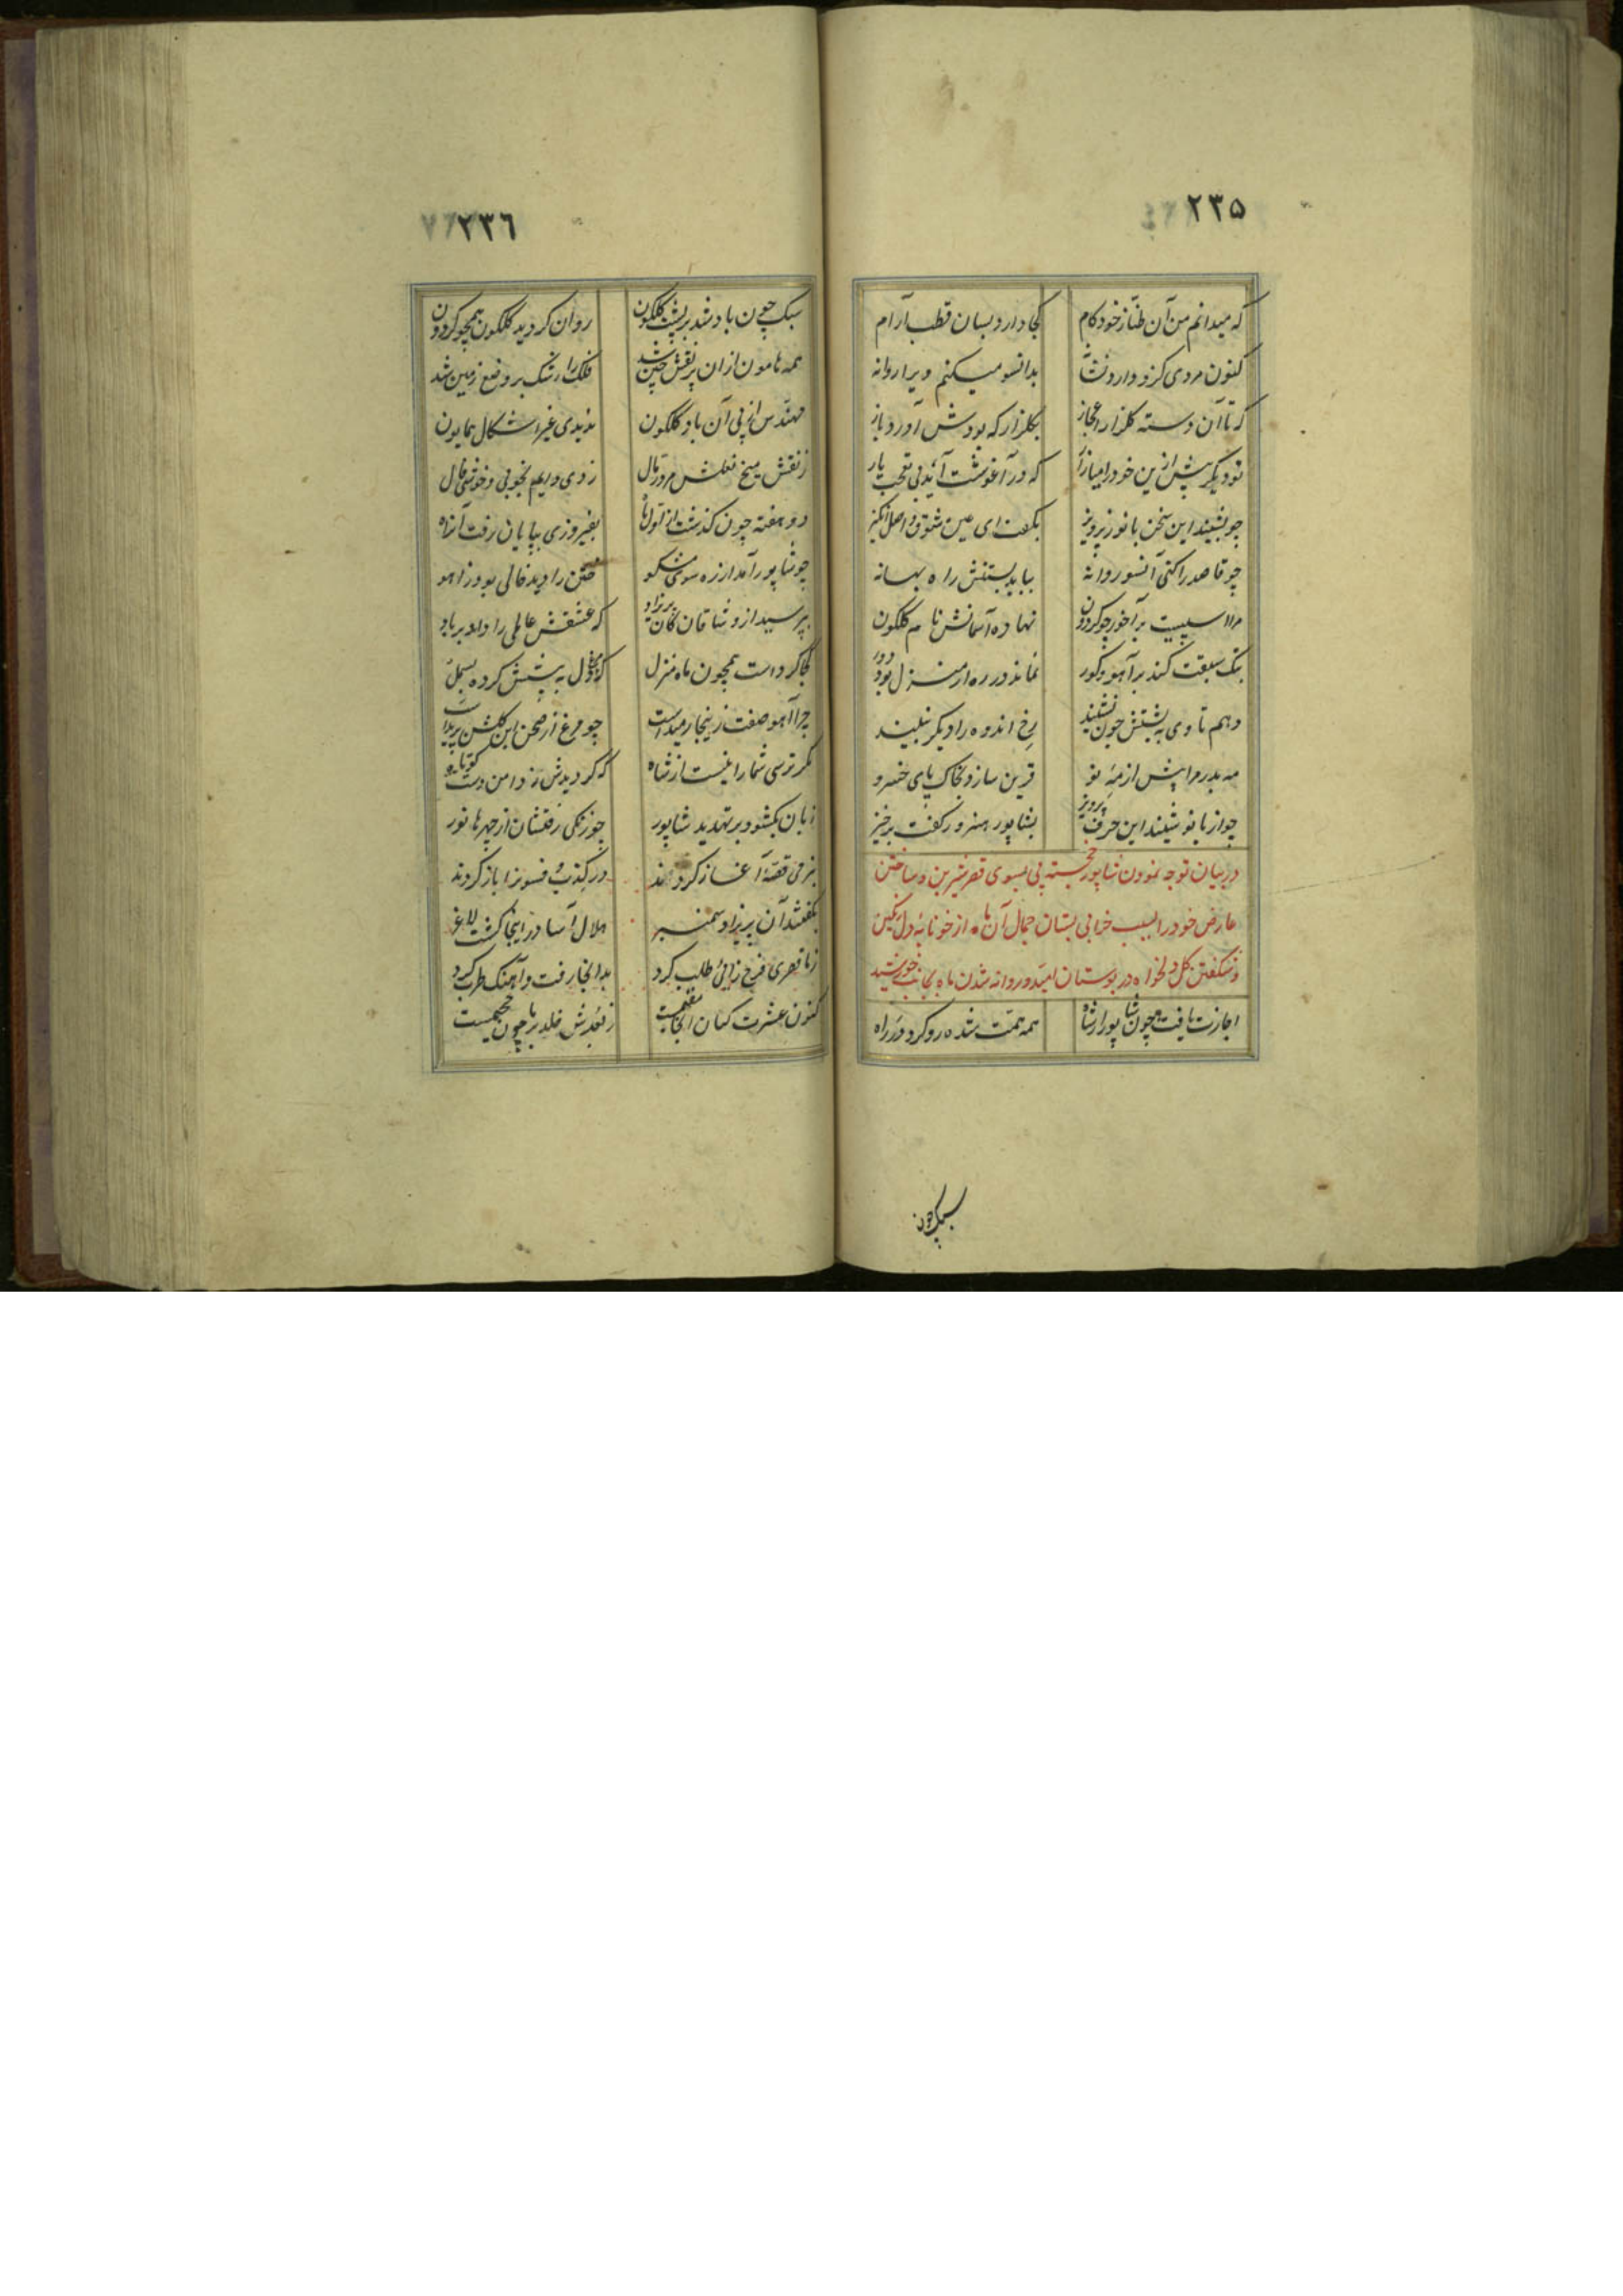 ۲۳۵
که میدانم من آن طناز خودکام کجا دارد بسان قطب آرام
کنون مردی کزو دارد نشانه بدانسو میکنم ویرا روانه
که تا آن دسته گلزار اعجاز بگلزار که بودش آورد باز
تو دیگر پیش ازین خود را میازار که در آغوشت آید بی تعب یار
چو بشنید این سخن بانو ز پرویز بگفت ای عین شوق و اصل انگیز
چو قاصد را کنی آنسو روانه بباید بستنش راه بهانه
مرا اسپیست بر آخور چو گردون نهاده آسمانش نام گلگون
بتک سبقت کند بر آهو و گور نماند در ره از منزل بود دور
دهم تا وی به پشتش چون نشیند رخ اندوه را دیگر نبیند
مه بدر مرا پیش از مه نو قرین سازد بخاک پای خسرو
چو از بانو شنید این حرف پرویز بشاپور هنرور گفت برخیز
در بیان توجه نمودن شاپور خجسته پی بسوی قصر شیرین و ساختن
عارض خود را بسبب خزانی بستان جمال آن ماه از خونابهٔ دل رنگین
و شکفتن گل دلخواه در بوستان امید و روانه شدن ماه بجانب خورشید
اجازت یافت چون شاپور از شاه همه همت شده رو کرد در راه
سبک چون
۲۳۶
سبک چون باد شد بر پشت گلگون روان گردید گلگون همچو گردون
همه هامون از آن پر نقش چین شد فلک را رشک بر وضع زمین شد
مهندس از پی آن باد گلگون ندیدی غیر اشکال همایون
ز نقش میخ نعلش مرد رمال زدی دایم بخوبی و خوشی فال
دو هفته چون گذشت از اول ماه بفیروزی بپایان رفت آن راه
چو شاپور آمد از ره سوی مشکو ختن را دید خالی بود ز آهو
بپرسید از وشاقان کان پریزاد که عشقش عالمی را داد بر باد
کجا کرد است همچون ماه منزل که دل به پیشش کرده بسمل
چرا آهو صفت زینجا رمید است چو مرغ از صحن این گلشن پرید است
مگر ترسی شما را نیست از شاه که کردیدش ز دامن دست کوتاه
زبان بگشود بر تهدید شاپور چو زنگی رفتشان از چهرها نور
بنرمی قصه آغاز کردند در کذب و فسونرا باز کردند
بگفتند آن پریزاد سمنبر هلال آسا در اینجا گشت لاغر
ز ما قصری فرح زائی طلب کرد بدانجا رفت و آهنگ طرب کرد
کنون عشرت کنان آنجا مقیمست ز بعدش خلد بر ما چون جحیمست